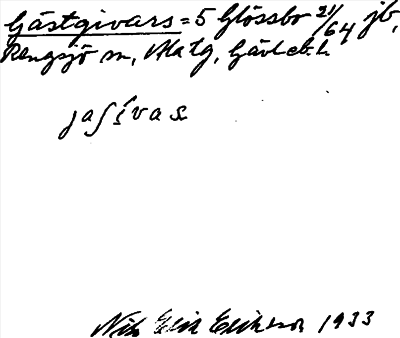 Gästgivars = 5 Glössbo 21/64 jb,
Rengsjö sn, Alatg, Gävleb. l.
jasívas
Nils Erik Eriksson 1933